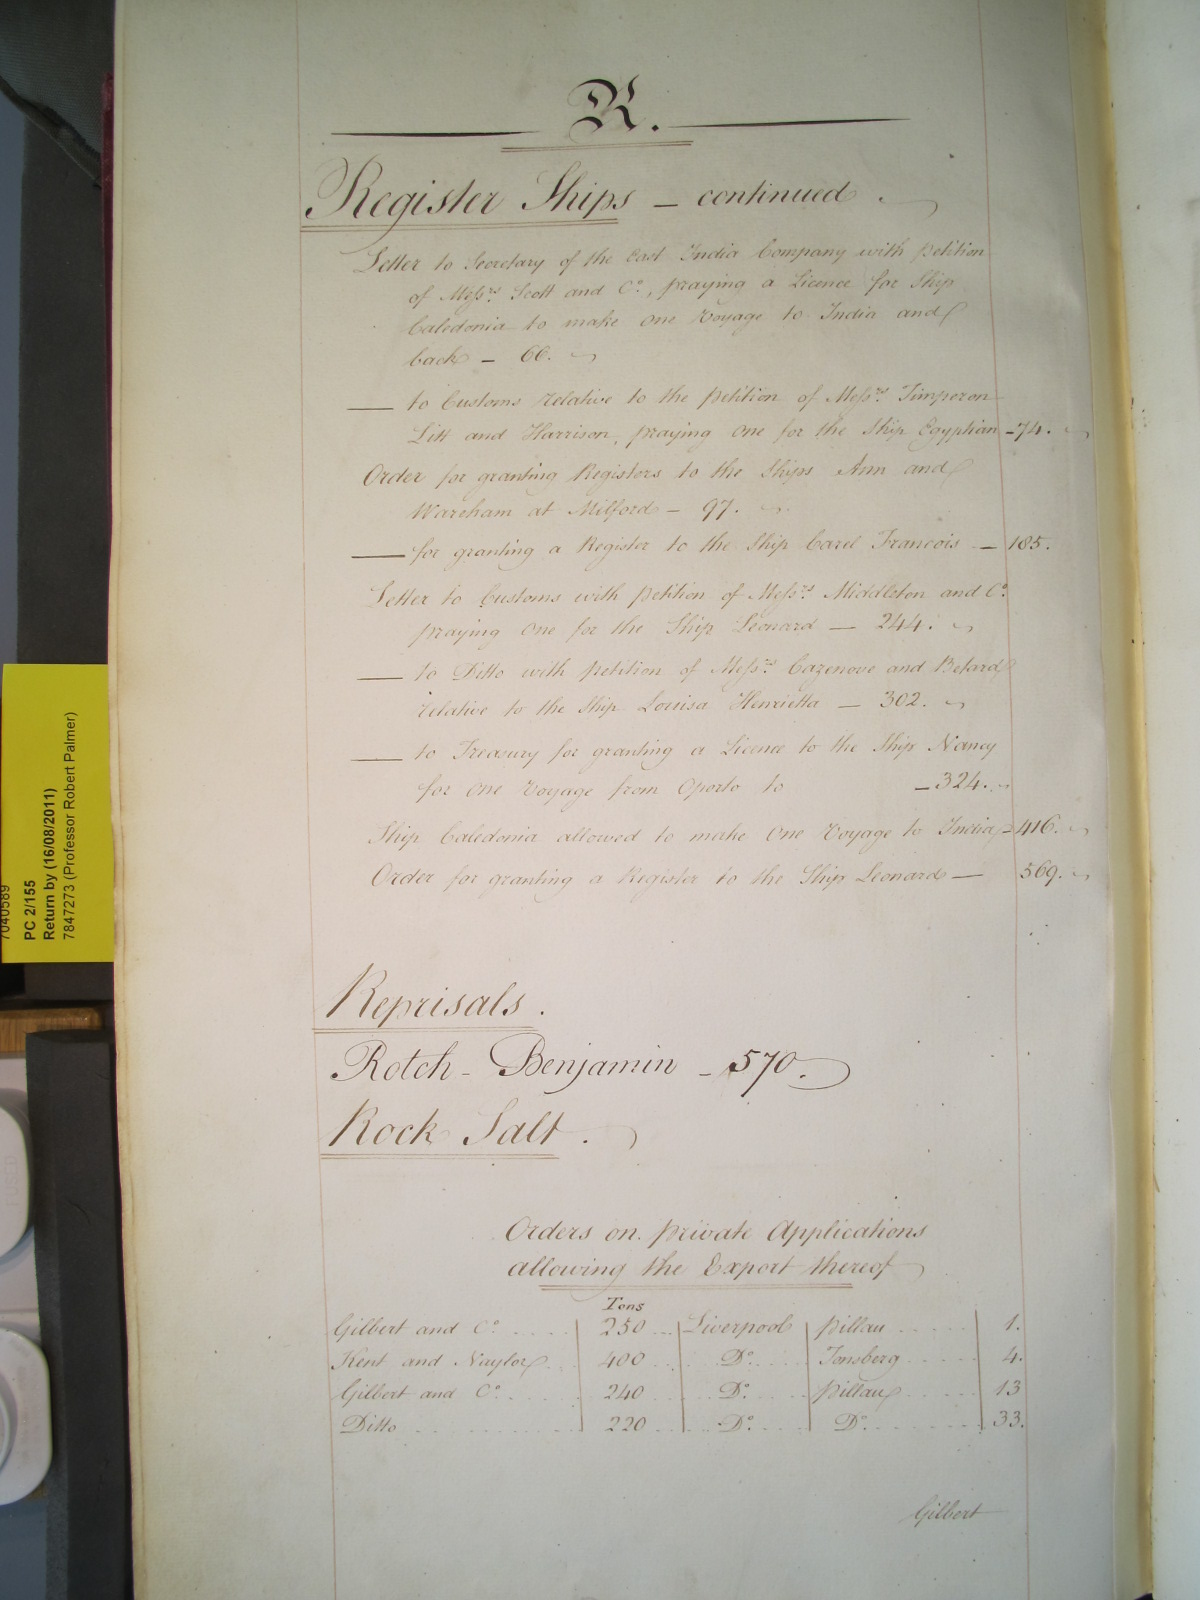 R.
Register Ships — continued
Letter to Secretary of the East India Company with Petition
of Messrs. Scott and Co., praying a Licence for Ship
Caledonia to make one Voyage to India and
back — 66.
— to Customs relative to the Petition of Messrs. Timperon
Litt and Harrison, praying one for the Ship Egyptian — 74.
Order for granting Registers to the Ships Ann and
Wareham at Milford — 97.
— for granting a Register to the Ship Carel Francois — 185.
Letter to Customs with Petition of Messrs. Middleton and Co.
praying one for the Ship Leonard — 244.
— to Ditto with petition of Messrs. Cazenove and Betard
relative to the Ship Louisa Henrietta — 302.
— to Treasury for granting a Licence to the Ship Nancy
for one Voyage from Oporto to — 324.
Ship Caledonia allowed to make one Voyage to India — 416.
Order for granting a Register to the Ship Leonard — 569.
Reprisals.
Rotch - Benjamin - 570.
Rock Salt.
Orders on private Applications
allowing the Export thereof
Tons
Gilbert and Co. .... 250 ... Liverpool Pillau ..... 1.
Kent and Naylor ... 400 .... Do. .... Tonsberg ..... 4.
Gilbert and Co. .... 240 .... Do. .... Pillau ..... 13
Ditto .... 220 .... Do. .... Do. .... 33.
Gilbert
7040589
PC 2/155
Return by (16/08/2011)
7847273 (Professor Robert Palmer)